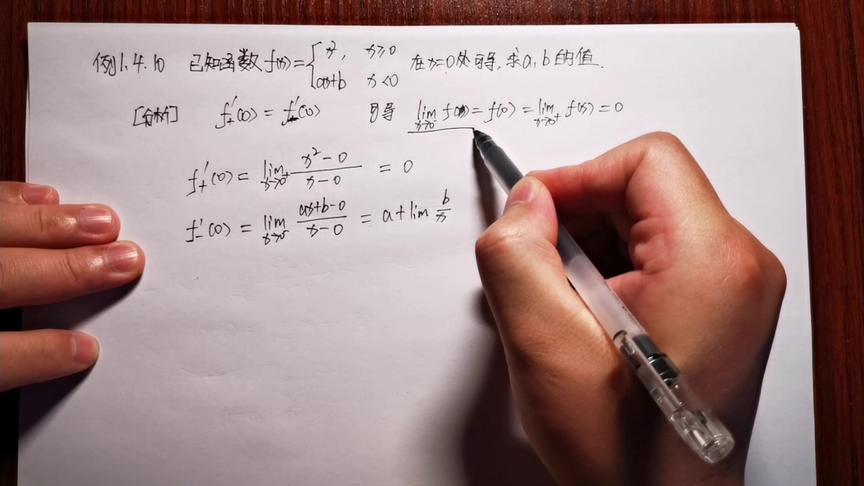 例1.4.10 已知函数 f(x)={x², x≥0
ax+b x<0 在x=0处可导,求a,b的值.
[分析] f₊'(0)=f₋'(0) 可导 lim x→0⁻ f(x)=f(0)=lim x→0⁺ f(x)=0
f₊'(0)=lim x→0⁺ (x²-0)/(x-0) =0
f₋'(0)=lim x→0⁻ (ax+b-0)/(x-0) =a+lim b/x